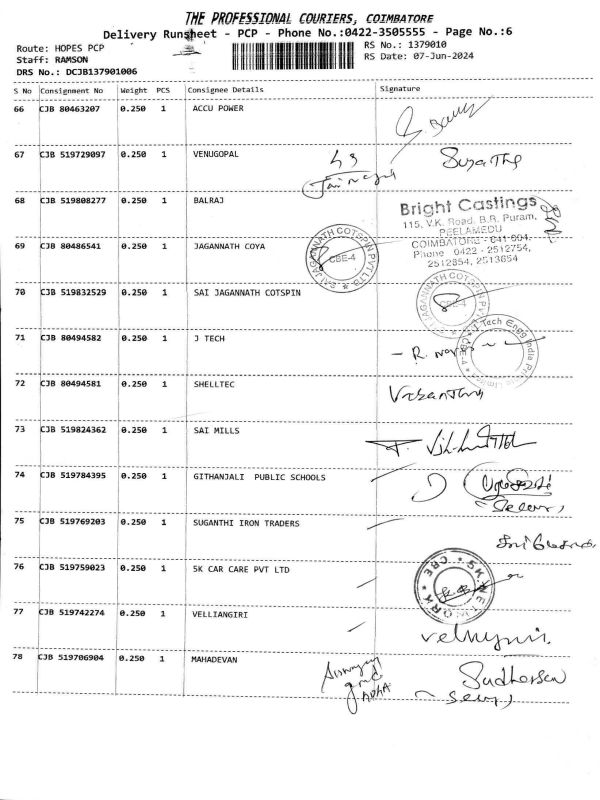 THE PROFESSIONAL COURIERS, COIMBATORE
Delivery Runsheet - PCP - Phone No.:0422-3505555 - Page No.:6
Route: HOPES PCP
Staff: RAMSON
DRS No.: DCJB137901006
RS No.: 1379010
RS Date: 07-Jun-2024
S No Consignment No Weight PCS Consignee Details Signature
66 CJB 80463207 0.250 1 ACCU POWER
67 CJB 519729097 0.250 1 VENUGOPAL
68 CJB 519808277 0.250 1 BALRAJ
Bright Castings
115, V.K. Road, B.R. Puram,
PEELAMEDU
COIMBATORE - 641 004.
Phone 0422 - 2512754,
2512854, 2513654
69 CJB 80486541 0.250 1 JAGANNATH COYA
SAI JAGANNATH COTSPIN PVT LTD
CBE-4
70 CJB 519832529 0.250 1 SAI JAGANNATH COTSPIN
SAI JAGANNATH COTSPIN PVT
CBE-4
71 CJB 80494582 0.250 1 J TECH
J Tech Engg India Private Limited
CBE-4
72 CJB 80494581 0.250 1 SHELLTEC
73 CJB 519824362 0.250 1 SAI MILLS
74 CJB 519784395 0.250 1 GITHANJALI PUBLIC SCHOOLS
75 CJB 519769203 0.250 1 SUGANTHI IRON TRADERS
76 CJB 519759023 0.250 1 5K CAR CARE PVT LTD
5K NETWORK
CBE
77 CJB 519742274 0.250 1 VELLIANGIRI
78 CJB 519706904 0.250 1 MAHADEVAN